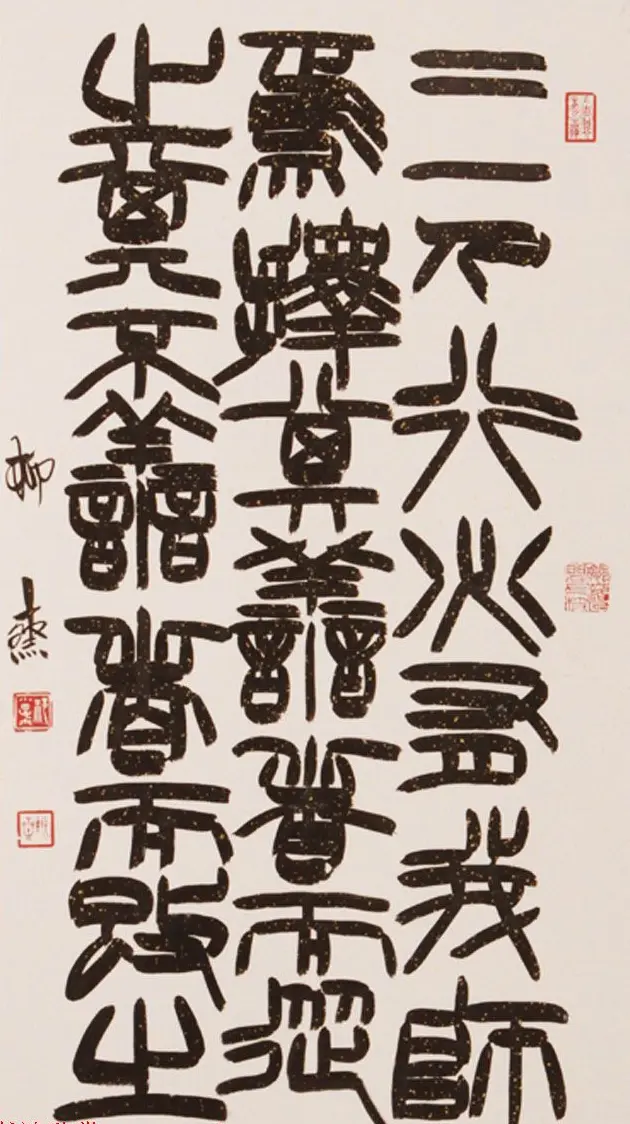 三人行必有我師
焉擇其善者而從
之其不善者而改之